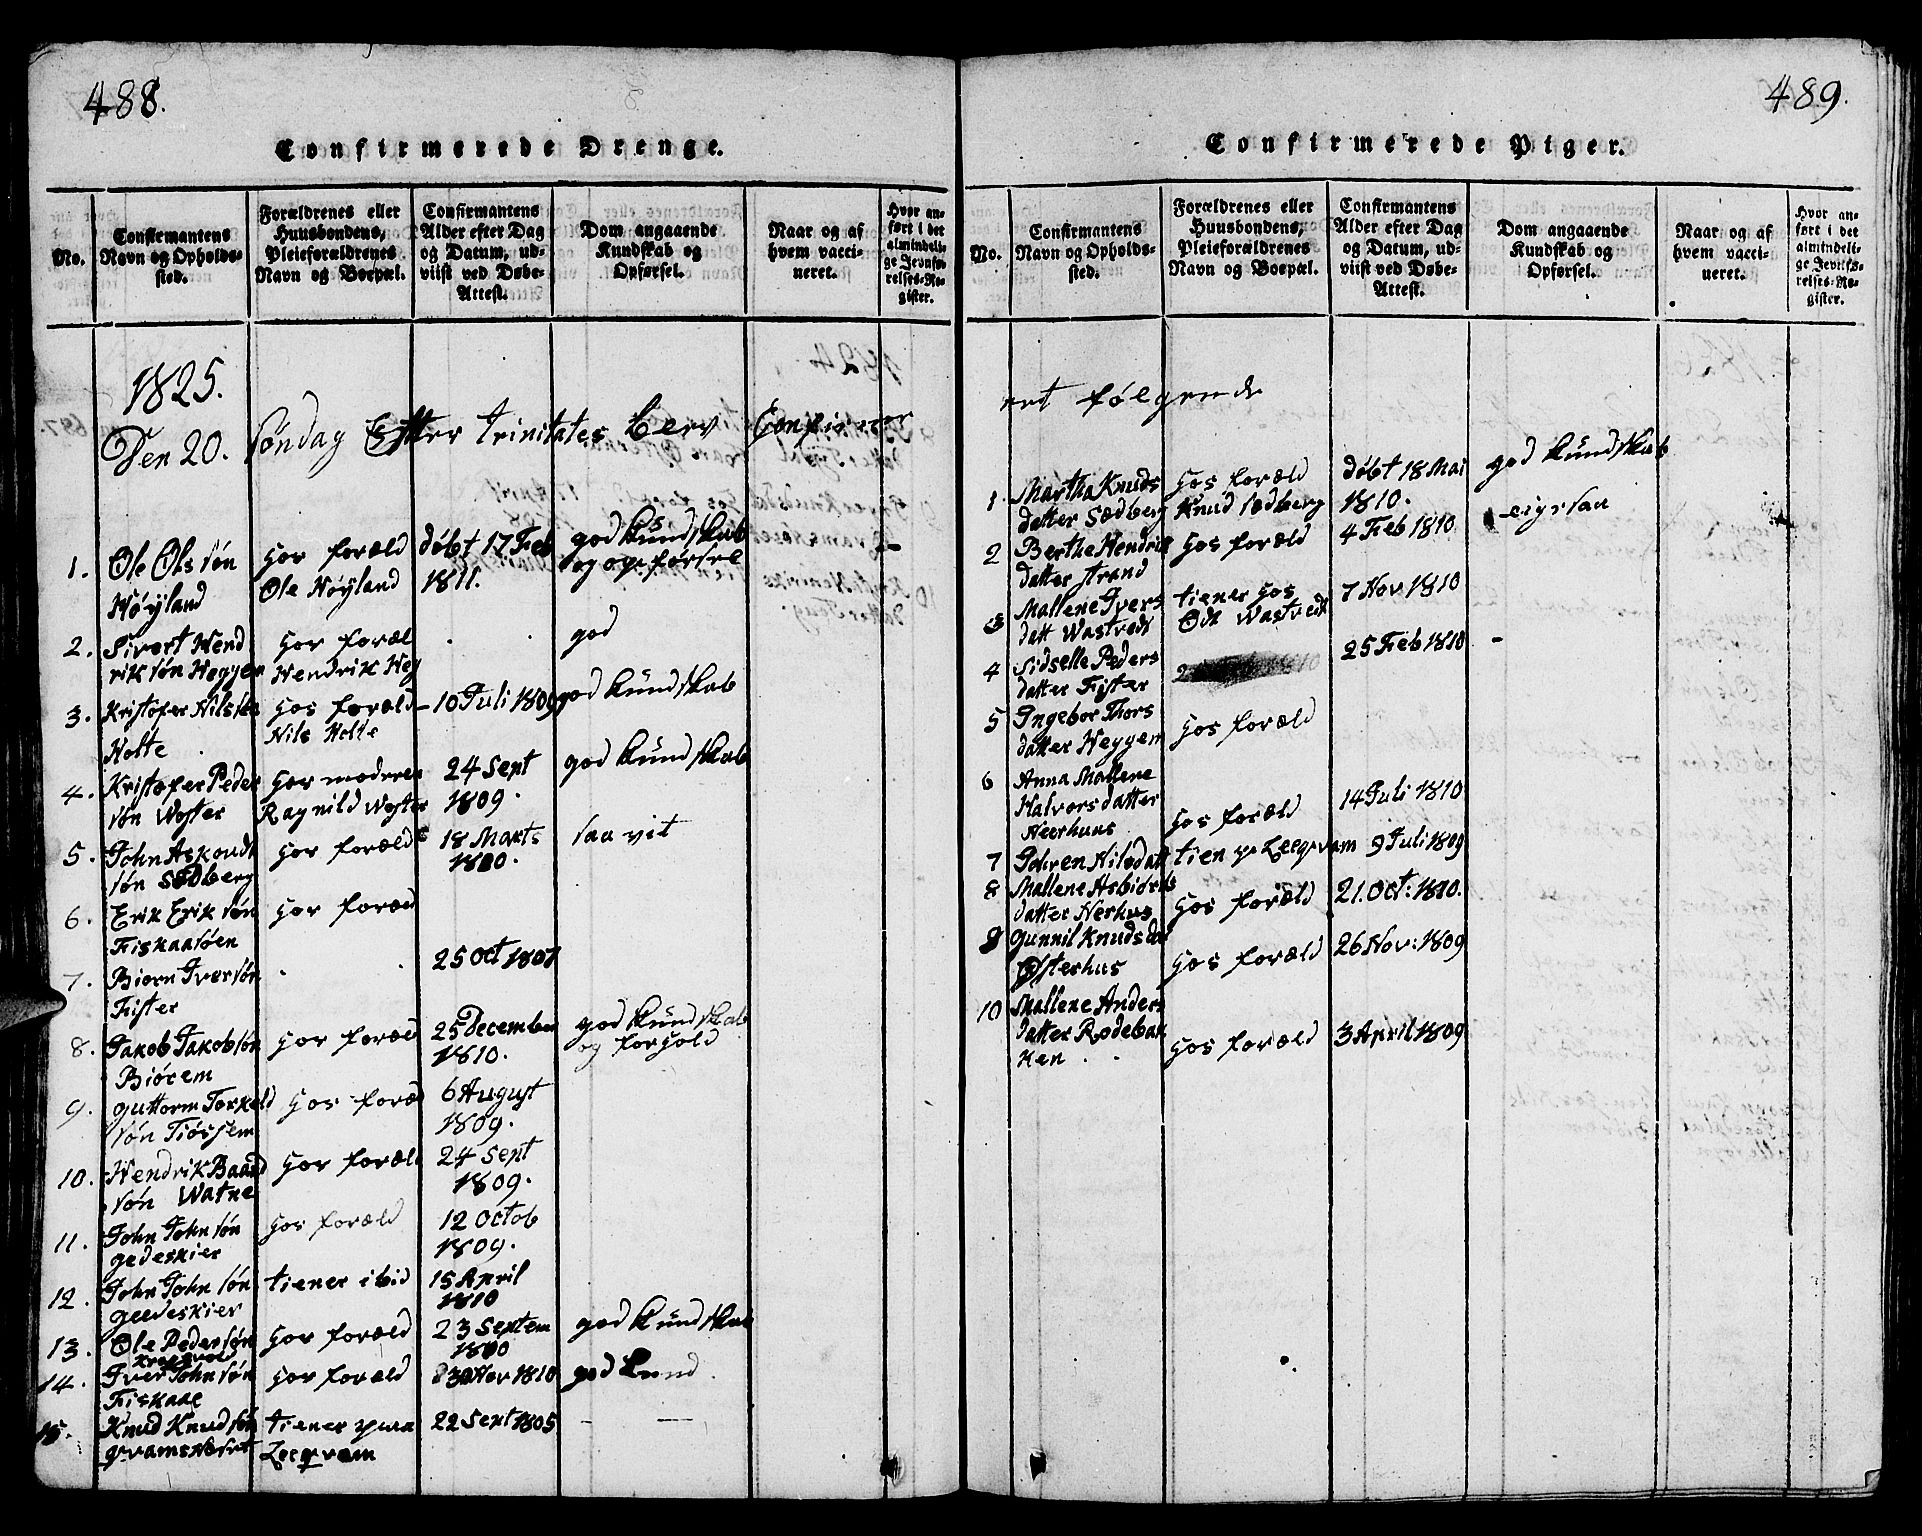 488.
Confirmerede Drenge.
No.
Confirmantens
Navn og Opholds-
sted.
Forældrenes eller
Huusbondens,
Pleieforældrenes
Navn og Boepæl.
Confirmantens
Alder efter Dag
og Datum, ud-
viist ved Døbe-
Attest.
Dom angaaende
Kundskab og
Opførsel.
Naar og af
hvem vacci-
neret.
Hvor an-
ført i det
almindeli-
ge Jevnfø-
relses-Re-
gister.
1825.
Den 20. Søndag Efter trinitates blev Confirmer
1. Ole Ols søn
Høÿland
hos foræld
Ole Høÿland
døbt 17 Feb
1811.
god kundskab
og opførsel
2. Sivert Hend
rik søn Heggen
hos foræl
Hendrik Heg
god
3. Kristofer Nilssøn
Holte
hos foræld
Nils Holte
10 Juli 1809
god kundskab
4. Kristofer Peder
søn Woster
hos moderen
Ragnild Woster
24 Sept
1809.
god kundskab
5. John Askoudt
søn Sedberg
hos foræld
18 Marts
1810.
saa vit
6. Erik Erik søn
Fiskaasøen
hos foræld
7. Biørn Iversøn
Fister
25 Oct 1807
8. Jakob Jakobsøn
Biørem
hos foræld
25 December
1810.
god kundskab
og forhold
9. Guttorm Torkeld
søn Tiøssem
hos foræld
6 August
1809.
10. Hendrik Baard
søn Watne
hos foræld
24 Sept
1809.
11. John John søn
gedeskier
hos foræld
12 Octob
1809.
12. John John søn
geedeskier
tiener ibid
15 April
1810
13. Ole Pedersøn
hos foræld
23 Septem
1810
god kundskab
14. Iver John søn
Fiskaae
hos foræld
23 Nov 1810
god kund
15. Knud Knudsøn
qvamsnæset
tiener paa
Leeqvam
22 Sept 1805
489.
Confirmerede Piger.
No.
Confirmantens
Navn og Opholds-
sted.
Forældrenes eller
Huusbondens,
Pleieforældrenes
Navn og Boepæl.
Confirmantens
Alder efter Dag
og Datum, ud-
viist ved Døbe-
Attest.
Dom angaaende
Kundskab og
Opførsel.
Naar og af
hvem vacci-
neret.
Hvor an-
ført i det
almindeli-
ge Jevnfø-
relses-Re-
gister.
ret følgende
1 Martha Knuds
datter Sædberg
hos foræld
Knud Sædberg
døbt 18 Mai
1810.
god kundskab
2 Berthe Hendrik
datter strand
hos foræld
4 Feb 1810
eigesaa
3 Mallene Ivers
datt Wastvedt
tiener hos
Odt Wastvedt
7 Nov 1810
4 Sidselle Peders
datter Fister
25 Feb 1810
5 Ingebor Thors
datter Heggen
hos foræld
6 Anna Mallene
Halvors datter
Neerhuus
hos foræld
14 Juli 1810
7 Gohren Nilsdatt
tien pa Leeqvam
9 Juli 1809
8 Mallene Asbiørns
datter Nerhus
hos foræld
21. Oct: 1810.
9 Gunnil Knudsdat
Østerhus
hos foræld
26 Nov: 1809
10 Mallene Anders
datter Rødebak
ken
hos foræld
3 April 1809